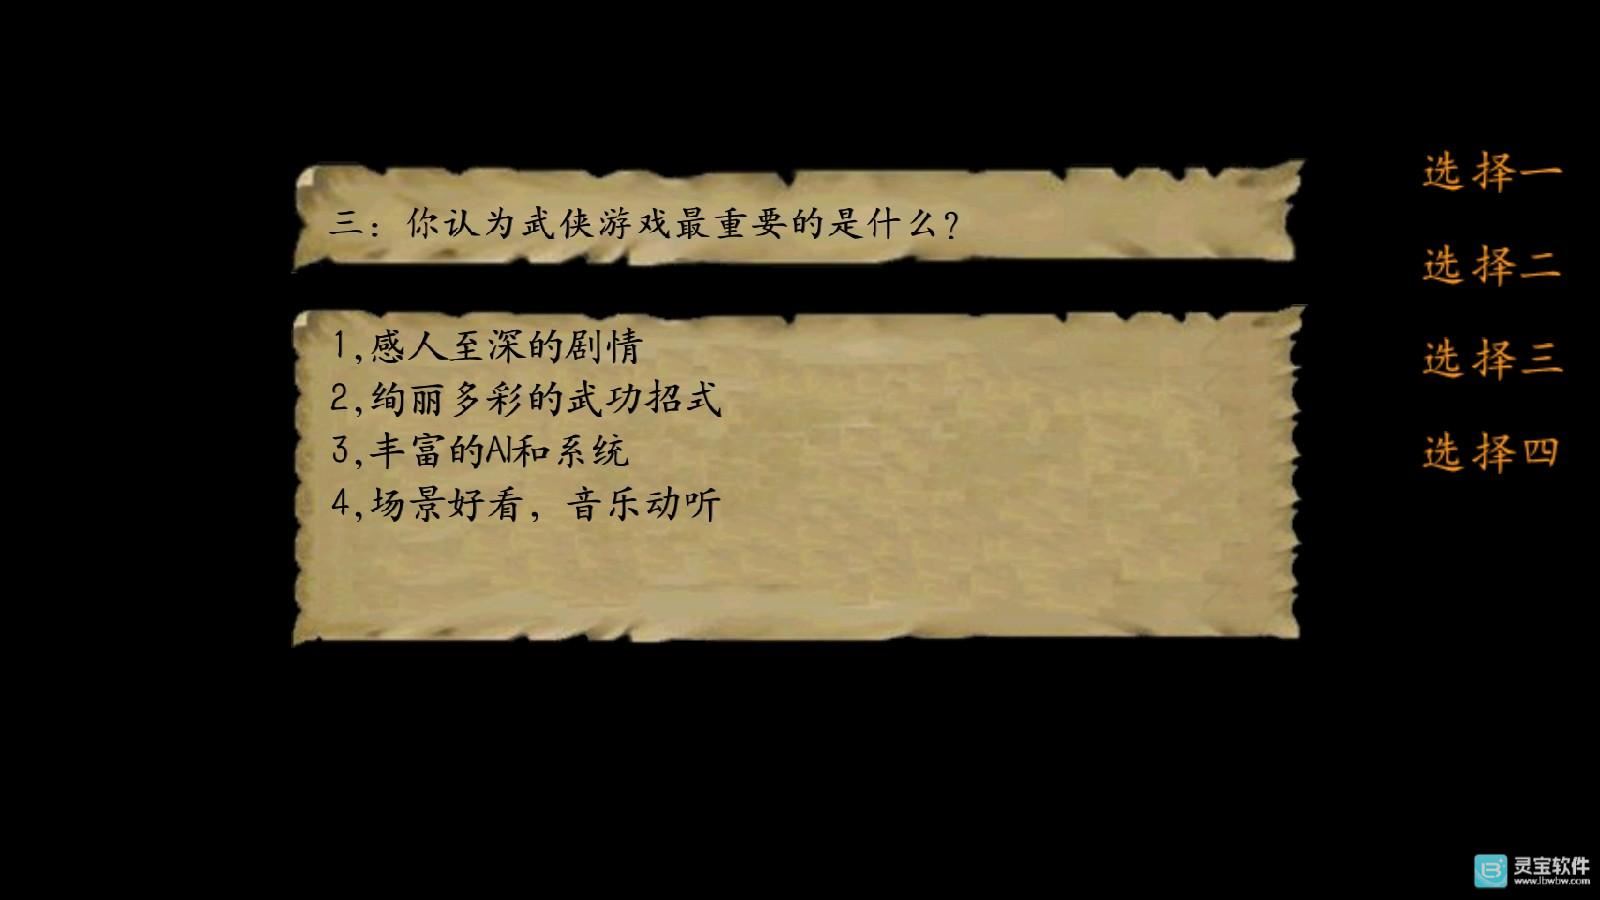 三：你认为武侠游戏最重要的是什么？
1,感人至深的剧情
2,绚丽多彩的武功招式
3,丰富的AI和系统
4,场景好看，音乐动听
选择一
选择二
选择三
选择四
灵宝软件
www.lbwbw.com